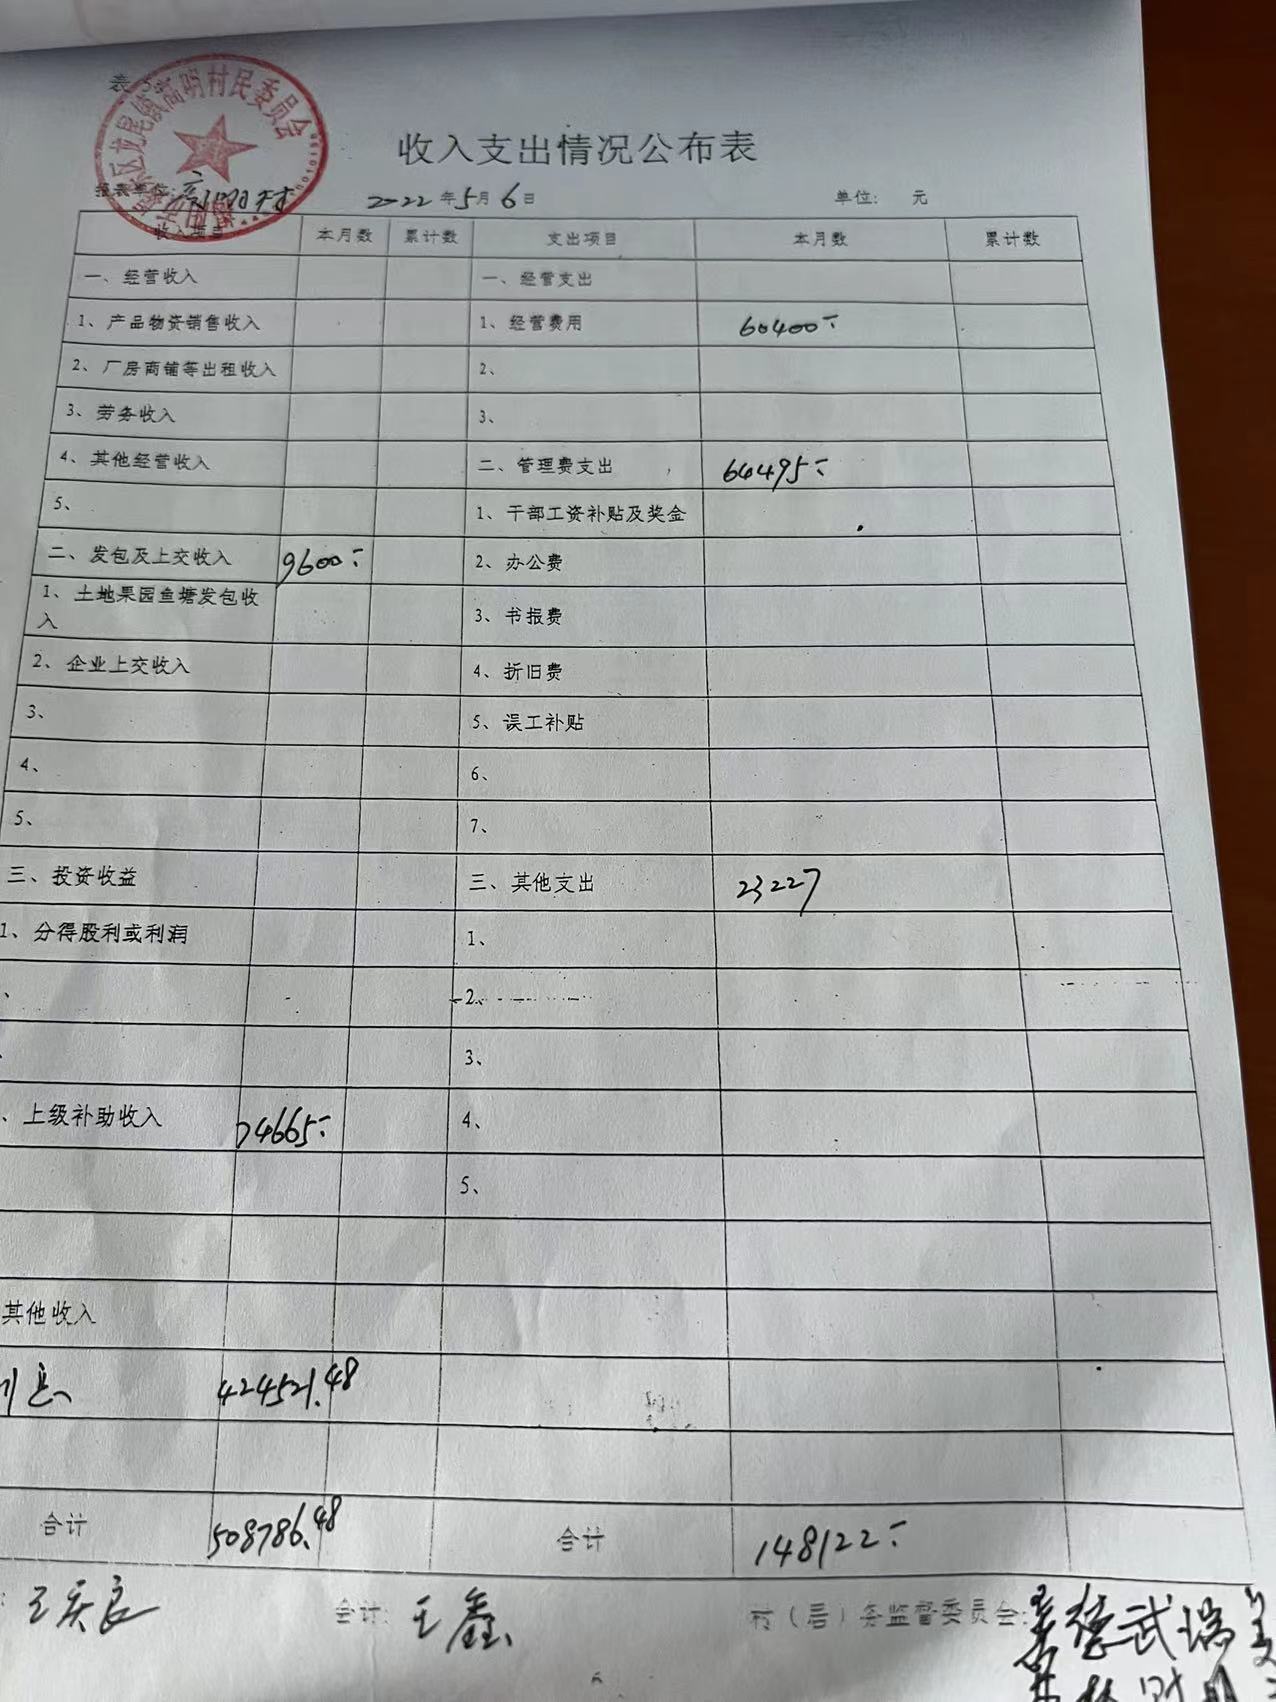 表3
龙尾镇高明村民委员会
收入支出情况公布表
报表单位:高明村 2022年5月6日 单位: 元
收入项目 本月数 累计数 支出项目 本月数 累计数
一、经营收入 一、经营支出
1、产品物资销售收入 1、经营费用 60400
2、厂房商铺等出租收入 2、
3、劳务收入 3、
4、其他经营收入 二、管理费支出 64495
5、 1、干部工资补贴及奖金
二、发包及上交收入 9600 2、办公费
1、土地果园鱼塘发包收
入 3、书报费
2、企业上交收入 4、折旧费
3、 5、误工补贴
4、 6、
5、 7、
三、投资收益 三、其他支出 23227
1、分得股利或利润 1、
、 2、
、 3、
、上级补助收入 74665 4、
5、
其他收入
利息 424521.48
合计 508786.48 合计 148122
王庆良 会计: 王鑫 村(居)务监督委员会: